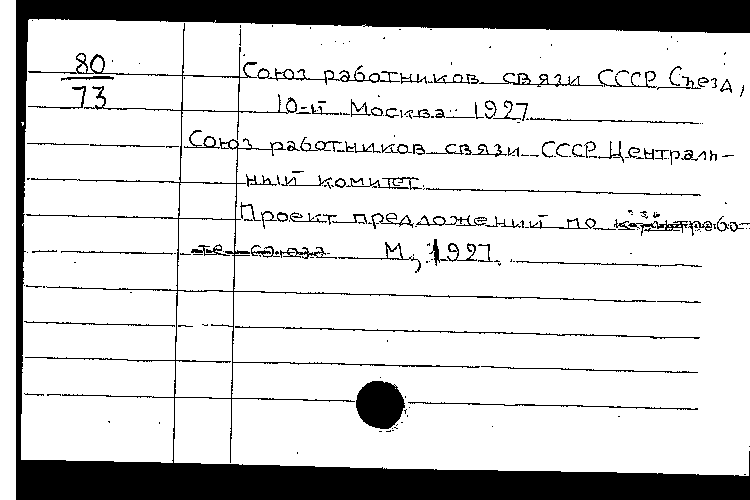 80
73
Союз работников связи СССР. Съезд,
10-й. Москва. 1927.
Союз работников связи СССР. Централь-
ный комитет.
Проект предложений по
М., 1927.